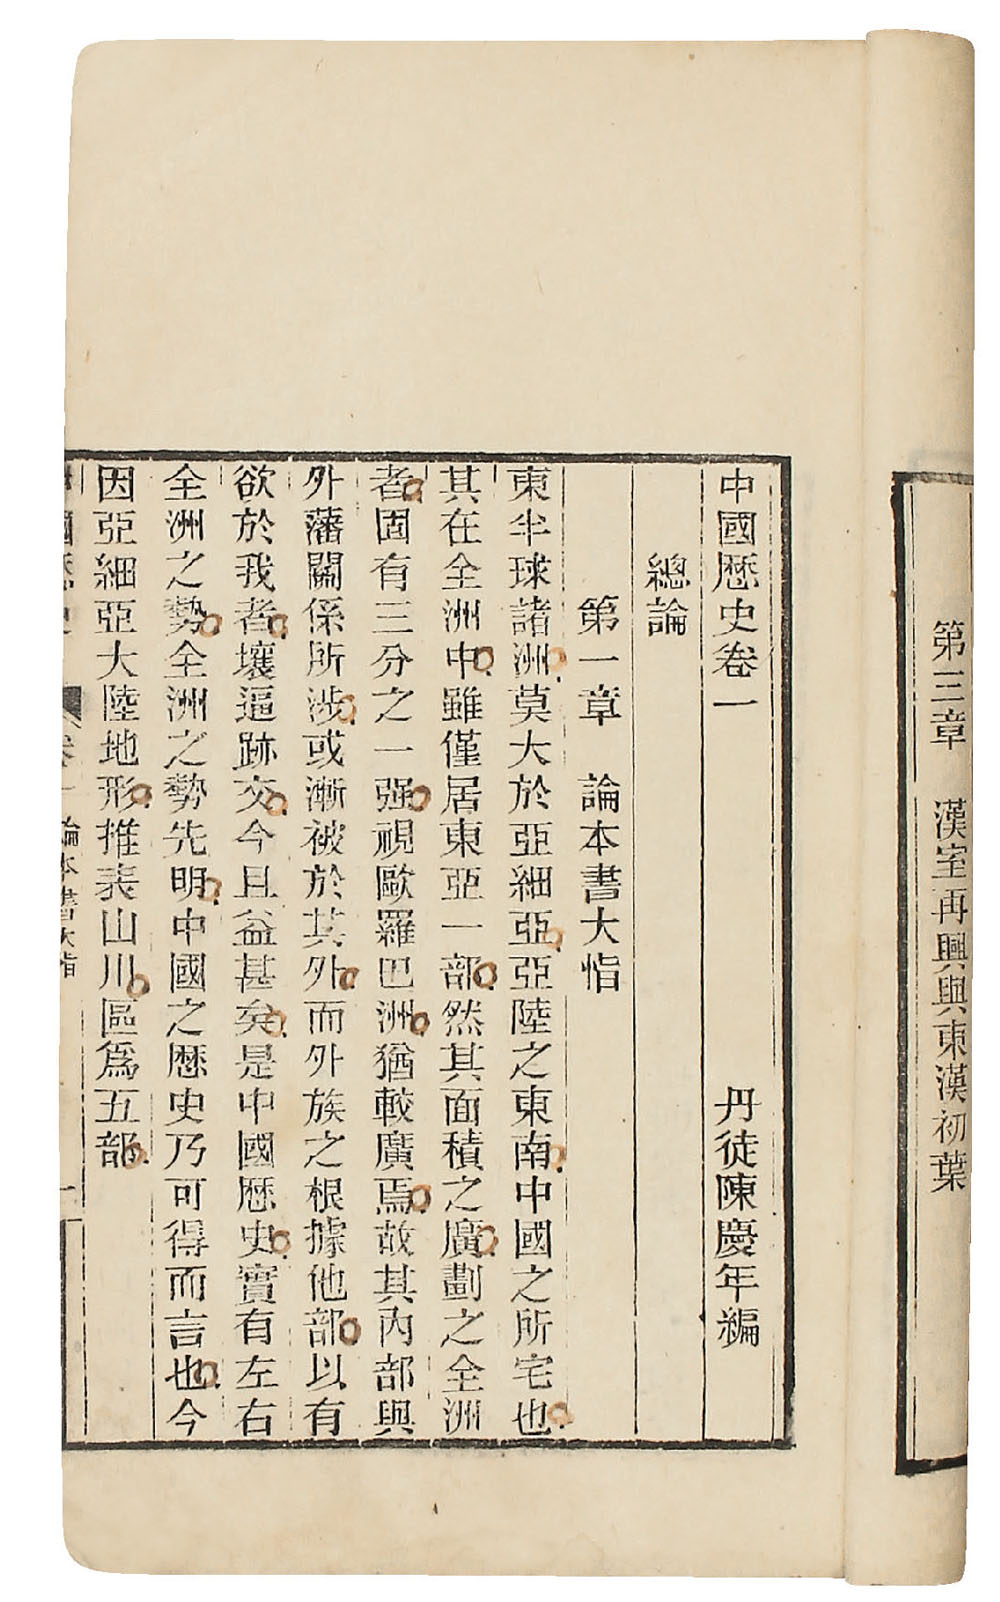 第三章　漢室再興與東漢初葉
中國歷史卷一　丹徒陳慶年編
總論
第一章　論本書大恉
東半球諸洲莫大於亞細亞亞陸之東南中國之所宅也
其在全洲中雖僅居東亞一部然其面積之廣劃之全洲
者固有三分之一强視歐羅巴洲猶較廣焉故其內部與
外藩關係所涉或漸被於其外而外族之根據他部以有
欲於我者壤逼跡交今且益甚矣是中國歷史實有左右
全洲之勢全洲之勢先明中國之歷史乃可得而言也今
因亞細亞大陸地形推表山川區爲五部
中國歷史　卷一　論本書大恉　一